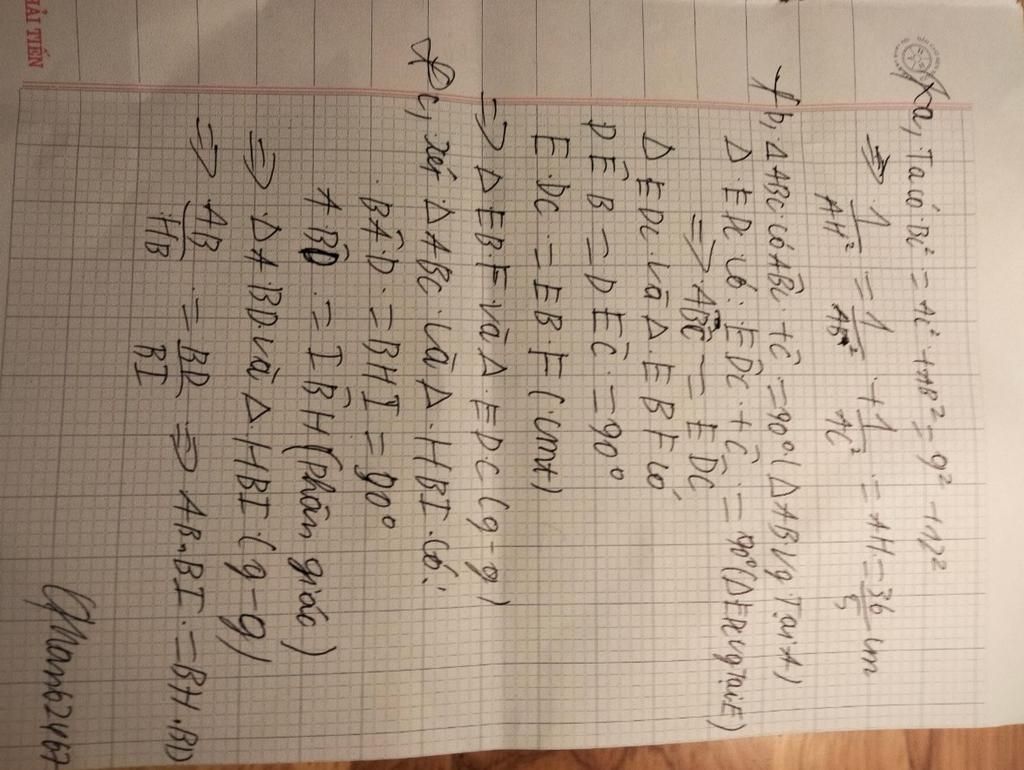 HẢI TIẾN
a, Ta có BC² = AC² + AB² = 9² + 12²
⇒ 1/AH² = 1/AB² + 1/AC² = AH = 36/5 cm
b, ΔABC có ABC + C = 90° (ΔABC vg Tại A)
Δ EDC có: EDC + C = 90° (Δ EDC vg Tại E)
⇒ ABC = EDC
Δ EDC và Δ EBF có
DEB = DEC = 90°
EDC = EBF (cmt)
⇒ Δ EBF và Δ EDC (g-g)
c, xét Δ ABC và Δ HBI có:
BAD = BHI = 90°
ABD = IBH (phân giác)
⇒ Δ ABD và Δ HBI (g-g)
⇒ AB/HB = BD/BI ⇒ AB.BI = BH.BD